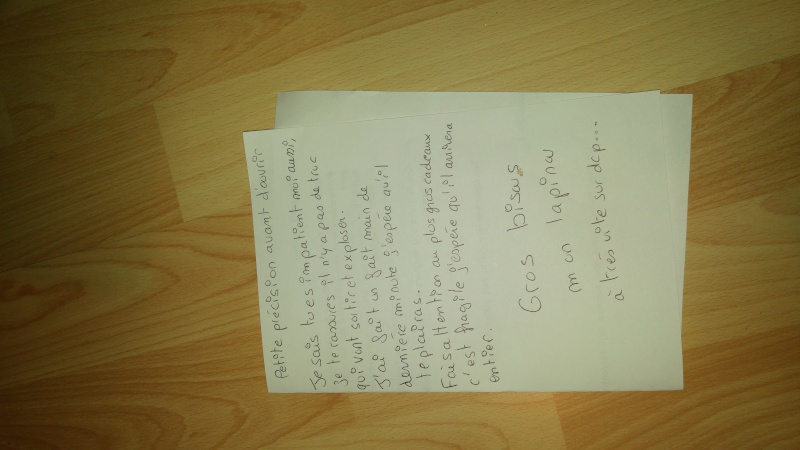 Petite précision avant d'ouvrir
Je sais tu es impatient moi aussi,
je te rassures il n'y a pas de truc
qui vont sortir et exploser.
J'ai fait un fait main de
dernière minute j'espère qu'il
te plairas.
Fais attention au plus gros cadeaux
c'est fragile j'espère qu'il arrivera
entier.
Gros bisous
mon lapinou
à très vite sur dcp...